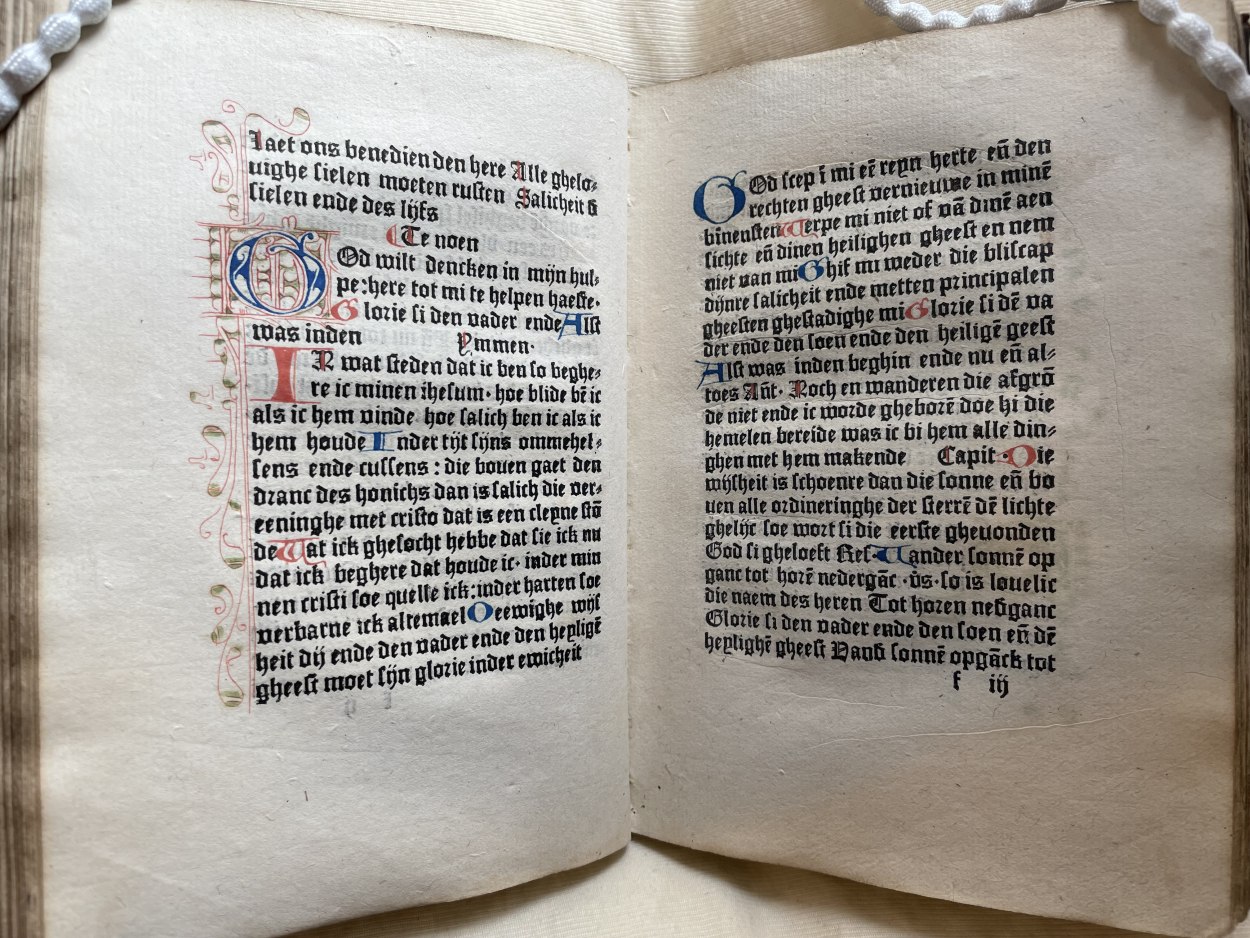 Laet ons benedien den here Alle ghelo⸗
uighe sielen moeten rusten Salicheit δ
sielen ende des lijfs
Te noen
GOd wilt dencken in mijn hul⸗
pe:here tot mi te helpen haeste·
Glorie si den vader ende Alst
was inden Ymmen·
IN wat steden dat ic ben so beghe⸗
re ic minen ihesum· hoe blide bē ic
als ic hem vinde hoe salich ben ic als ic
hem houde Inder tijt sijns ommehel⸗
sens ende cussens : die bouen gaet den
dranc des honichs dan is salich die ver⸗
eeninghe met cristo dat is een cleyne stō
de Wat ick ghesocht hebbe dat sie ick nu
dat ick beghere dat houde ic· inder min
nen cristi soe quelle ick:inder harten soe
verbarne ick altemael O eewighe wijs
heit dij ende den vader ende den heyligē
gheest moet sijn glorie inder ewicheit
GOd scep ī mi eē reyn herte eñ den
rechten gheest vernieuwe in minē
bīnensten Werpe mi niet of vā dinē aen
sichte eñ dinen heilighen gheest en nem
niet van mi Ghif mi weder die bliscap
dijnre salicheit ende metten principalen
gheesten ghestadighe mi Glorie si dē va
der ende den soen ende den heiligē geest
Alst was inden beghin ende nu eñ al⸗
toes Añt· Noch en wanderen die afgrō
de niet ende ic worde gheborē doe hi die
hemelen bereide was ic bi hem alle din⸗
ghen met hem makende Capit· Die
wijsheit is schoenre dan die sonne eñ bo
uen alle ordineringhe der sterrē dē lichte
ghelijc soe wort si die eerste gheuonden
God si gheloeft Res· Wander sonnē op
ganc tot horē nedergāc ·v̄s· so is louelic
die naem des heren Tot horen neδganc
Glorie si den vader ende den soen eñ dē
heylighē gheest Vanδ sonnē opgāck tot
f iij